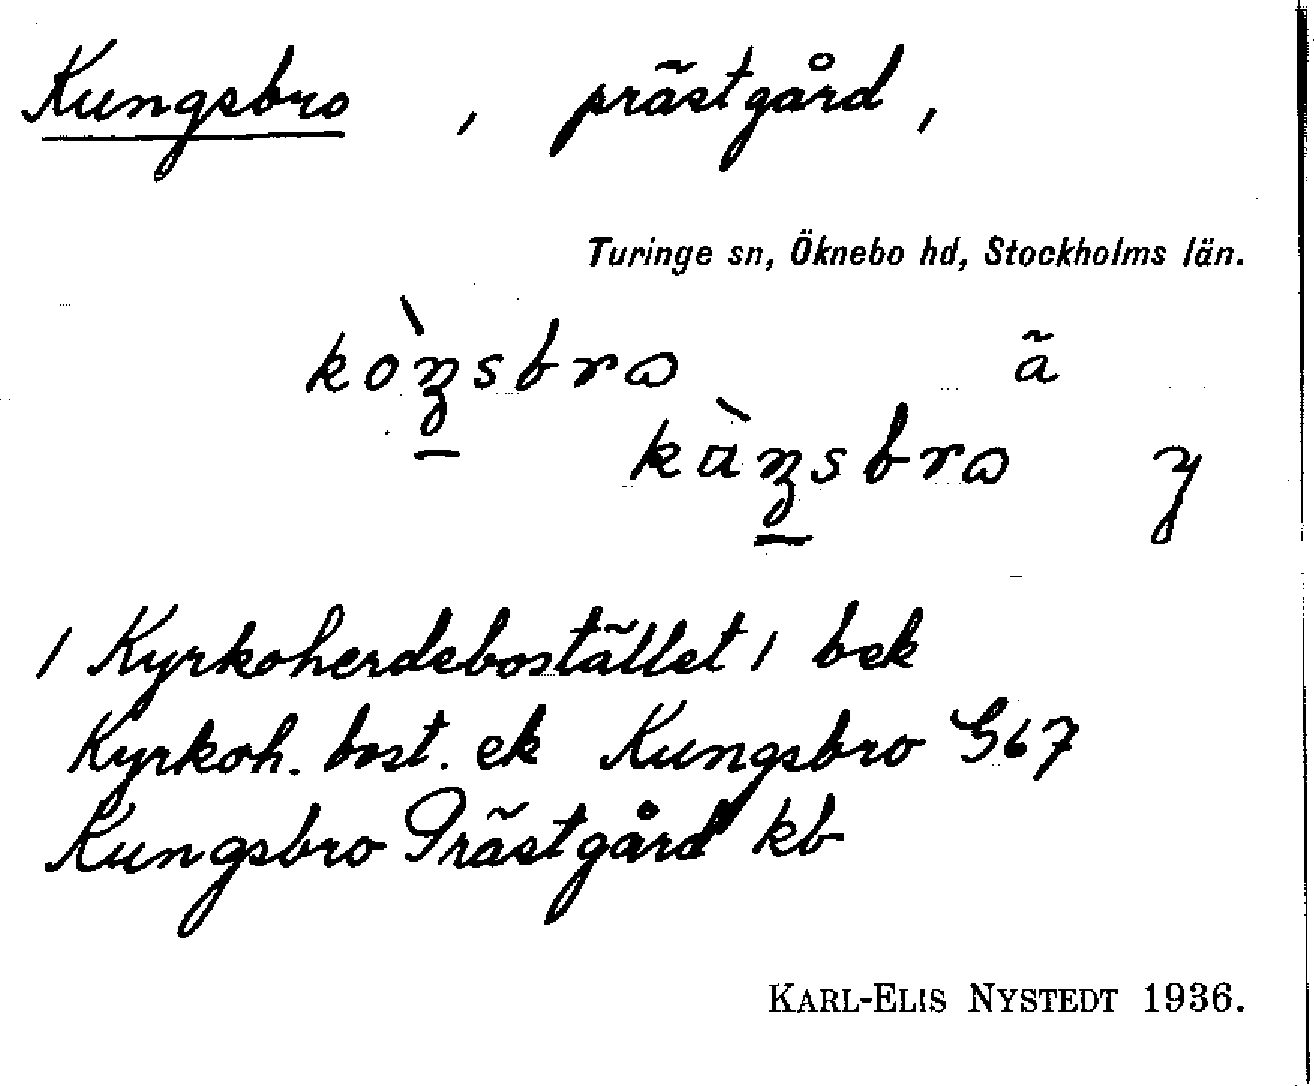 Kungsbro , prästgård ,
Turinge sn, Öknebo hd, Stockholms län.
ä
y
/ Kyrkoherdebostället / bek
Kyrkoh. bost. ek Kungsbro G67
Kungsbro Prästgård kb
KARL-ELIS NYSTEDT 1936.